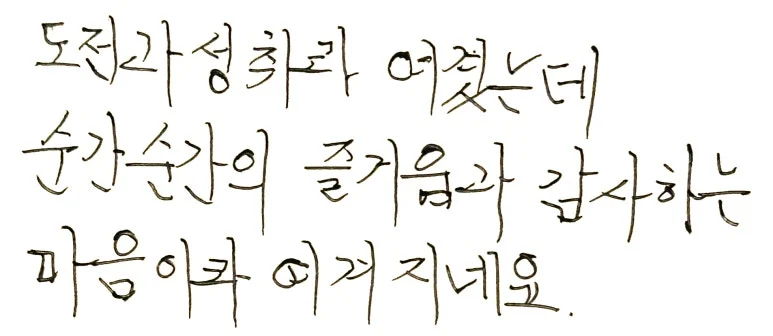 도전과 성취라 여겼는데
순간순간의 즐거움과 감사하는
마음이라 여겨지네요.